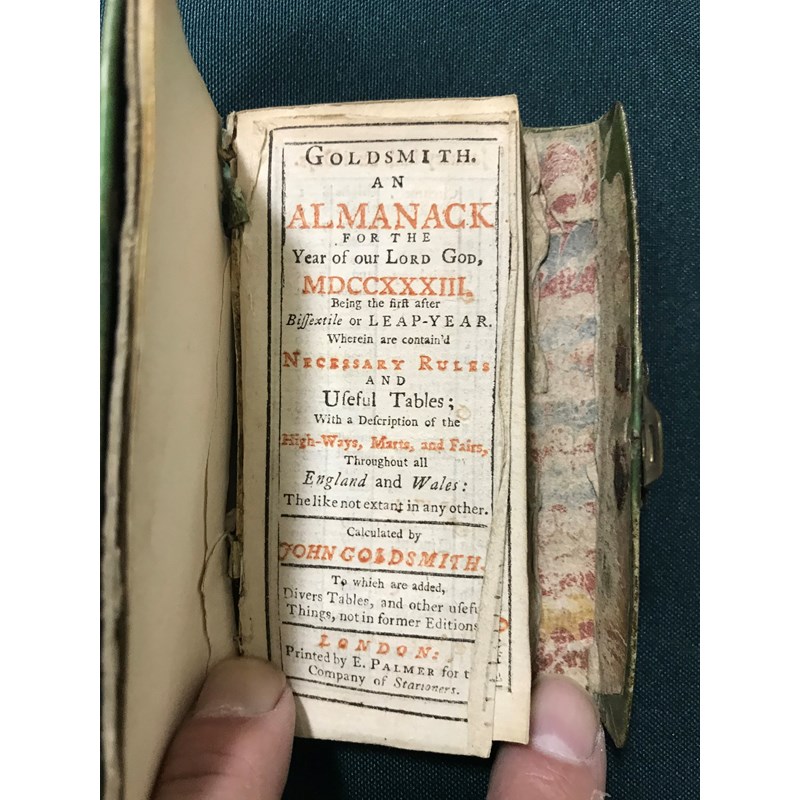 GOLDSMITH.
AN
ALMANACK
FOR THE
Year of our LORD GOD,
MDCCXXXIII.
Being the firſt after
Biſſextile or LEAP-YEAR.
Wherein are contain'd
NECESSARY RULES
AND
Uſeful Tables;
With a Deſcription of the
High-Ways, Marts, and Fairs,
Throughout all
England and Wales:
The like not extant in any other.
Calculated by
JOHN GOLDSMITH.
To which are added,
Divers Tables, and other uſefu
Things, not in former Editions
LONDON:
Printed by E. PALMER for t
Company of Stationers.